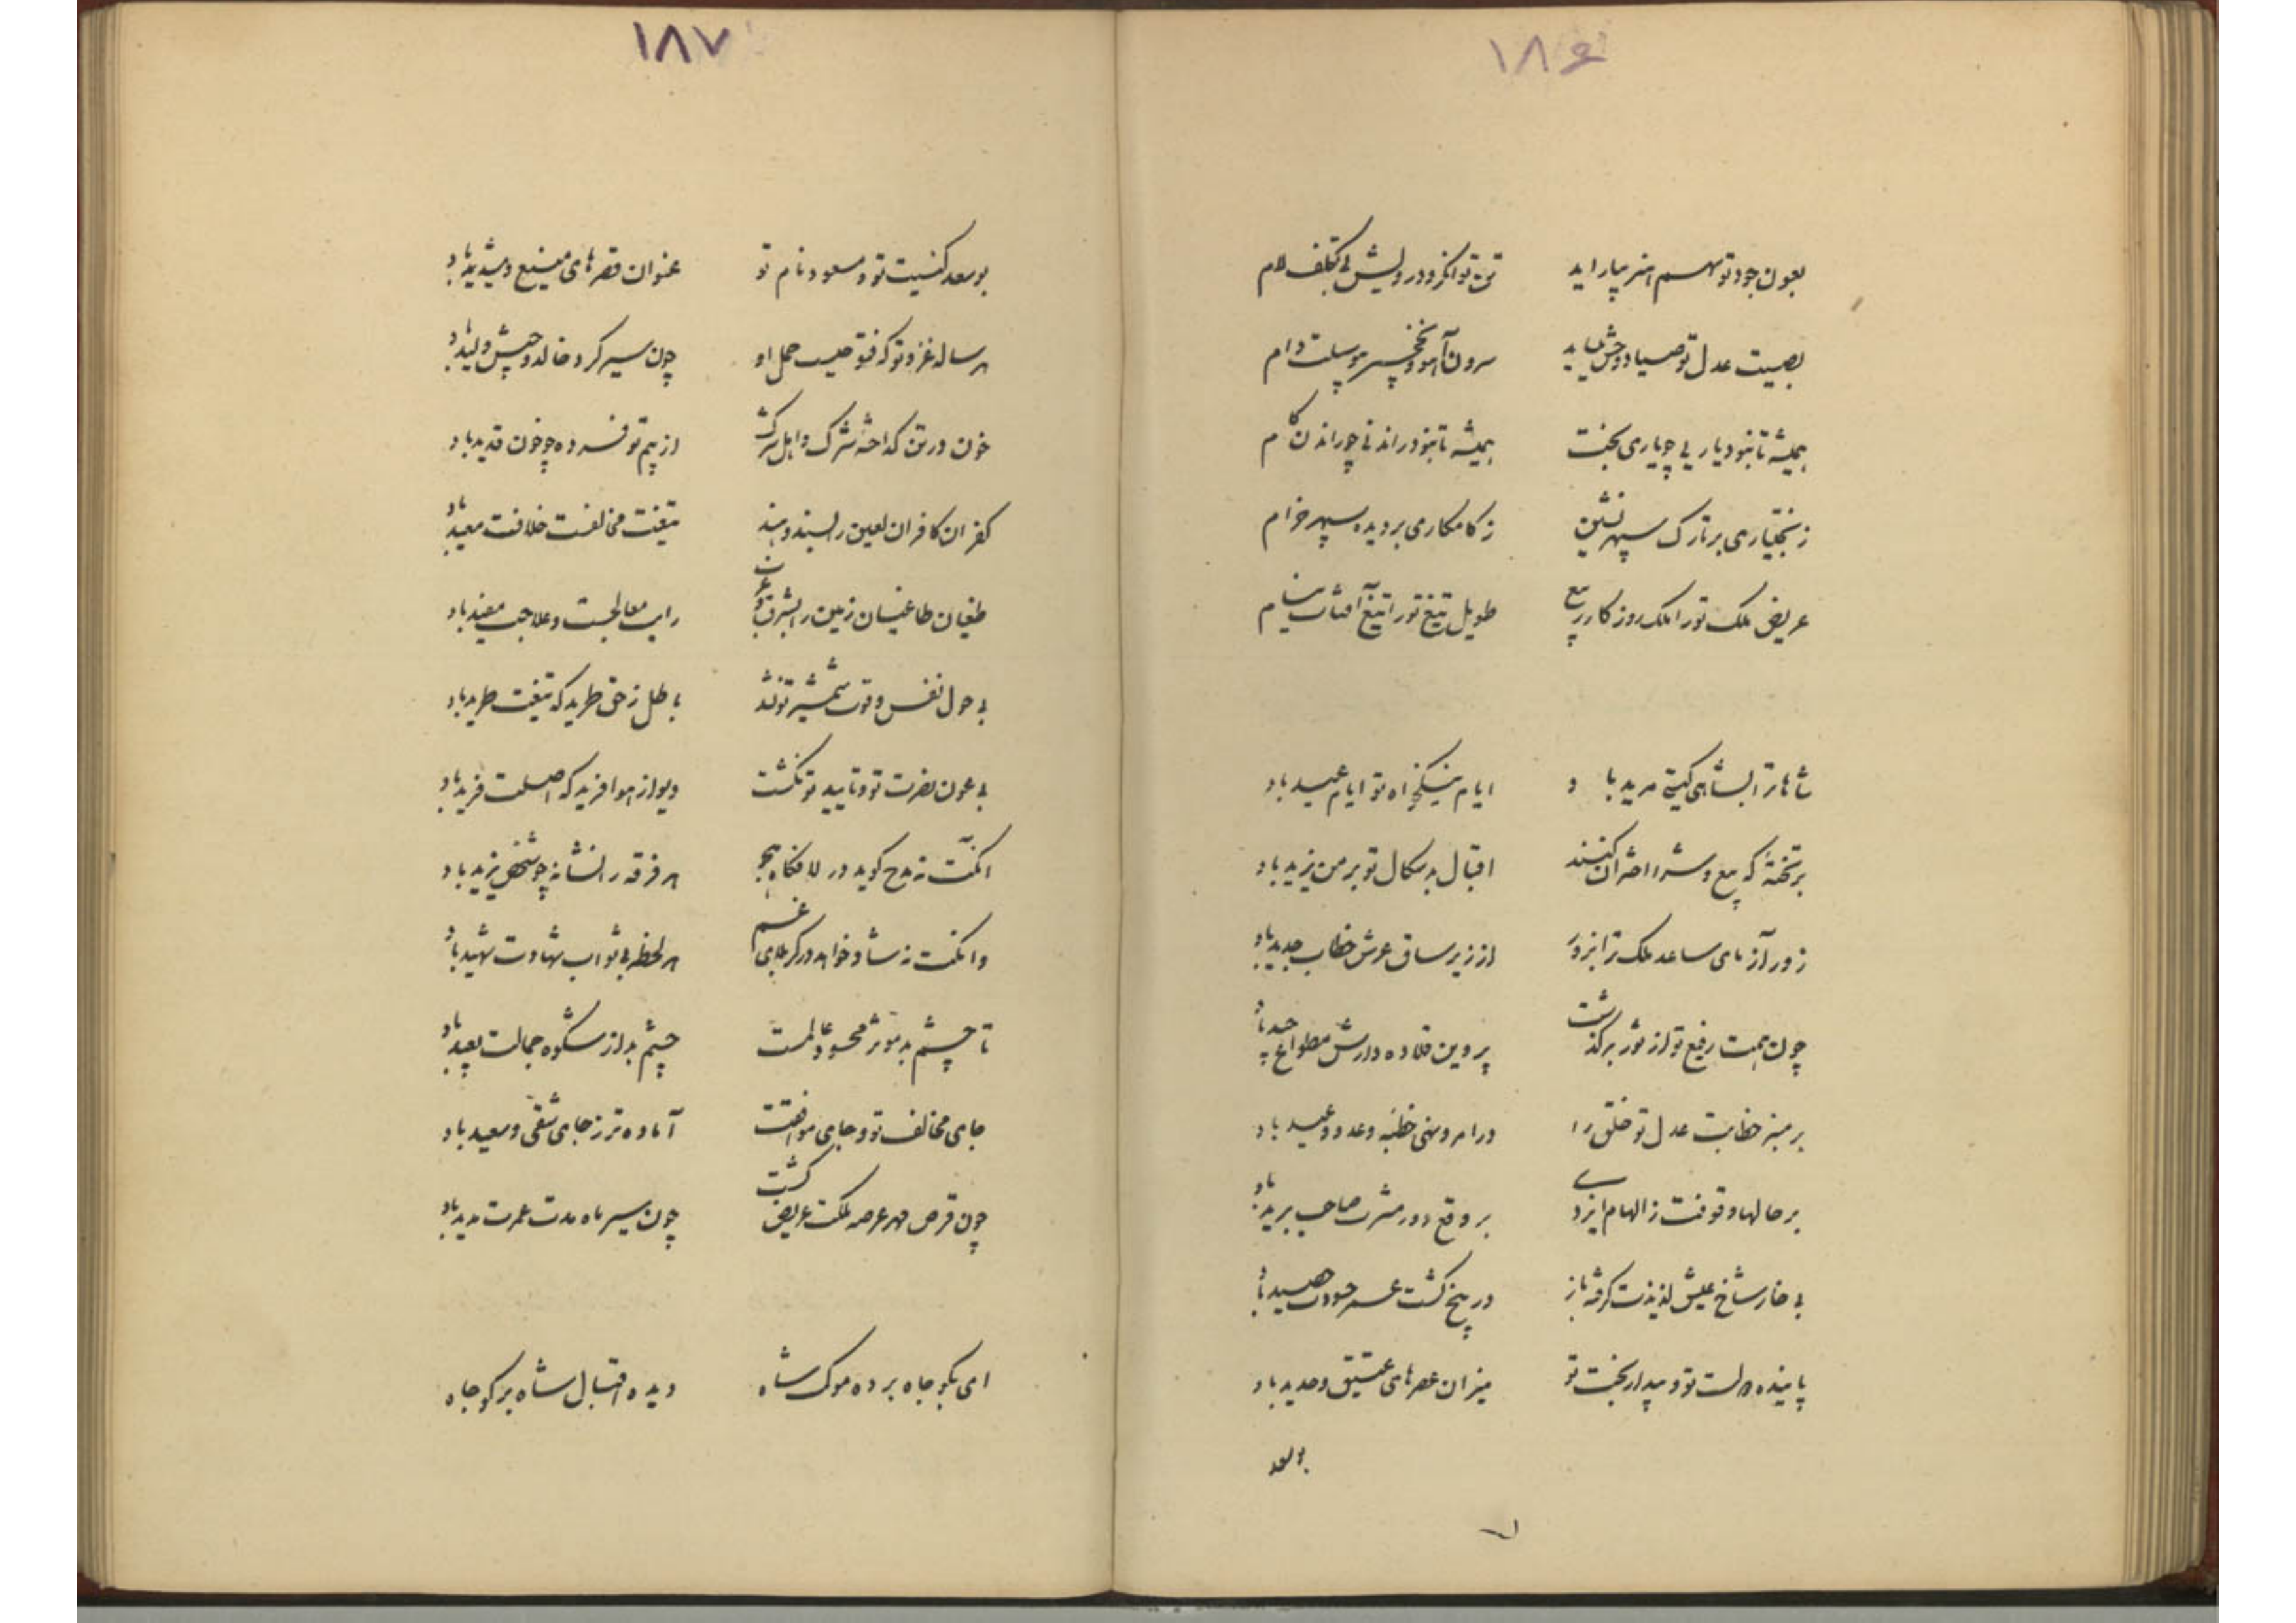 ۱۸۶
بعون جود تو سهم افسر بیاراید تن توانگر و درویش بی تکلف لام
بصیت عدل تو صیاد وحش باید سرون آهو و نخجیر موسلت دام
همیشه تا نبود یار بی چو یاری بخت همیشه تا نبود راندنی چو راندن کام
ز بختیاری بر تارک سپهر نشین ز کامکاری بر دیده سپهر خرام
عریض ملک تو را ملک روزکار ربیع طویل تیغ تو را تیغ آفتاب نیام
شاها ترا بشاهی کیتی مرید باد ایام نیکخواه تو ایام عید باد
بر تختهٔ که بیع و شرا اختران کنند اقبال بدسکال تو بر من یزید باد
زور آزمای ساعد ملک ترا ز زور از زیر ساق عرش خطاب جدید باد
چون همت رفیع تو از ثور برگذشت پروین قلاده دار سش مطواع جید باد
بر منبر خطابت عدل تو خلق را در امر و نهی خطبه وعد و وعید باد
بر حالها وقوفت ز الهام ایزدی بر وقع دور مشرت صاحب برید باد
بی خار شاخ عیش لذیذت گرفته باز در بیخ کشت عمر حسودت حصید باد
پاینده دولت تو و بیدار بخت تو میزان عصرهای عتیق و جدید باد
بوسعد
۱۸۷
بوسعد کنیت تو و مسعود نام تو عنوان قصرهای منیع و مشید باد
هر ساله غزو تو که فتوحیست حمل او چون سیر کرد خالد و جیش ولید باد
خون در تن کداختهٔ شرک و اهل شرک از بیم تو فسرده چو خون قدید باد
کفران کافران لعین را بسند و هند تیغت مخالفت خلافت معید باد
طغیان طاغیان زمین را بشرق و غرب رایت معالجت و علاجت مفید باد
بی حول نفس و قوت شمشیر تو نشد باطل ز حق طرید که تیغت طرید باد
بی عون نصرت تو و تایید تو نکشت دیو از هوا فرید که اصلت فرید باد
انکت نه مدح کوید در لافکاه هجو هر فرقه را نشانه چو شخص یزید باد
وانکت نه شاد خواهد در کربلای غم هر لحظه بی ثواب شهادت شهید باد
تا چشم بد موثر محسود عالمست چشم بد از شکوه جمالت بعید باد
جای مخالف تو و جای موافقت آماده تر ز جای شقی و سعید باد
چون قرص مهر عرصه ملکت عریض کشت چون سیر ماه مدت عمرت مدید باد
ای بکو جاه برده موکب شاه دیده اقبال شاه بر کو جاه